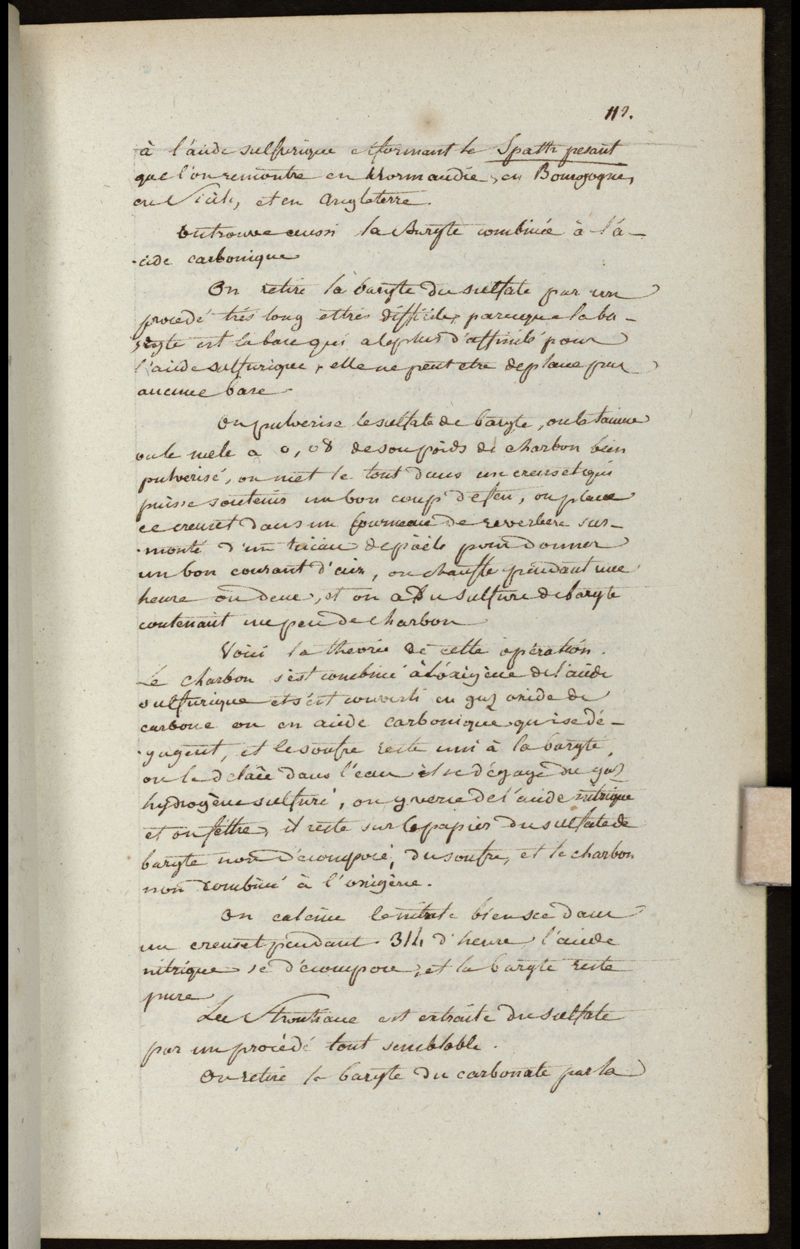 119.
à l'acide sulfurique et formant le Spath pesant
que l'on rencontre en Normandie, en Bourgogne,
en Sicile, et en Angleterre.
On trouve aussi la Baryte combinée à l'a-
-cide carbonique
On retire la baryte du sulfate par un
procedé très long et très difficile, parceque la ba-
-ryte est la base qui a le plus d'affinité pour
l'acide sulfurique, elle ne peut etre deplacée par
aucune base.
On pulverise le sulfate de baryte, on le tamise
on le mele a 0,08 de son poids de charbon bien
pulverisé, on met le tout dans un creuset qui
puisse soutenir un bon coup de feu, on place
ce creuset dans un fourneau de reverbere sur-
-monté d'un tuiau de poële pour donner
un bon courant d'air, on chauffe pendant une
heure ou deux, et on a du sulfure de baryte
contenant un peu de charbon
Voici la theorie de cette opération.
Le charbon s'est combiné à l'oxigène de l'acide
sulfurique et s'est converti en gaz oxide de
carbone ou en acide carbonique qui se dé-
-gagent, et le soufre reste uni à la baryte,
on le delaïe dans l'eau il se dégage du gaz
hydrogène sulfuré, on y verse de l'acide nitrique
et on filtre, il reste sur le papier du sulfate de
baryte non décomposé, du soufre, et le charbon
non combiné à l'oxigène.
On calcine le nitrate bien sec dans
un creuset pendant 3/4 d'heure l'acide
nitrique se décompose, et la baryte reste
pure
La Strontiane est extraite du sulfate
par un procédé tout semblable.
On retire la baryte du carbonate par la